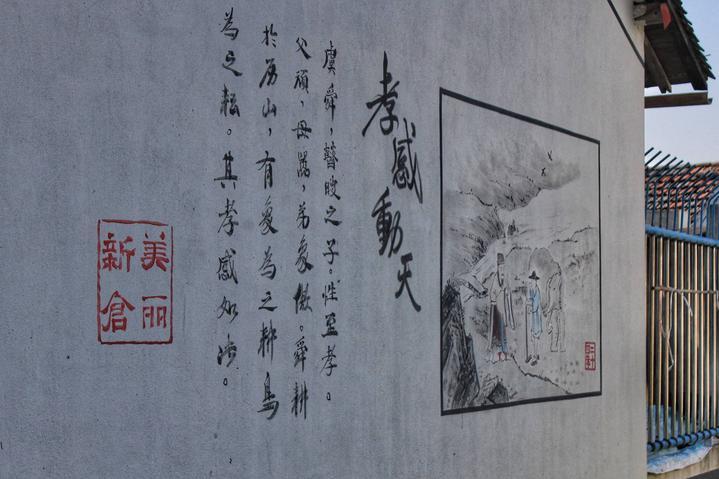 孝感動天
虞舜，瞽瞍之子。性至孝。
父頑，母嚚，弟象傲。舜耕
於历山，有象為之耕鳥
為之耘。其孝感如此。
美丽
新倉